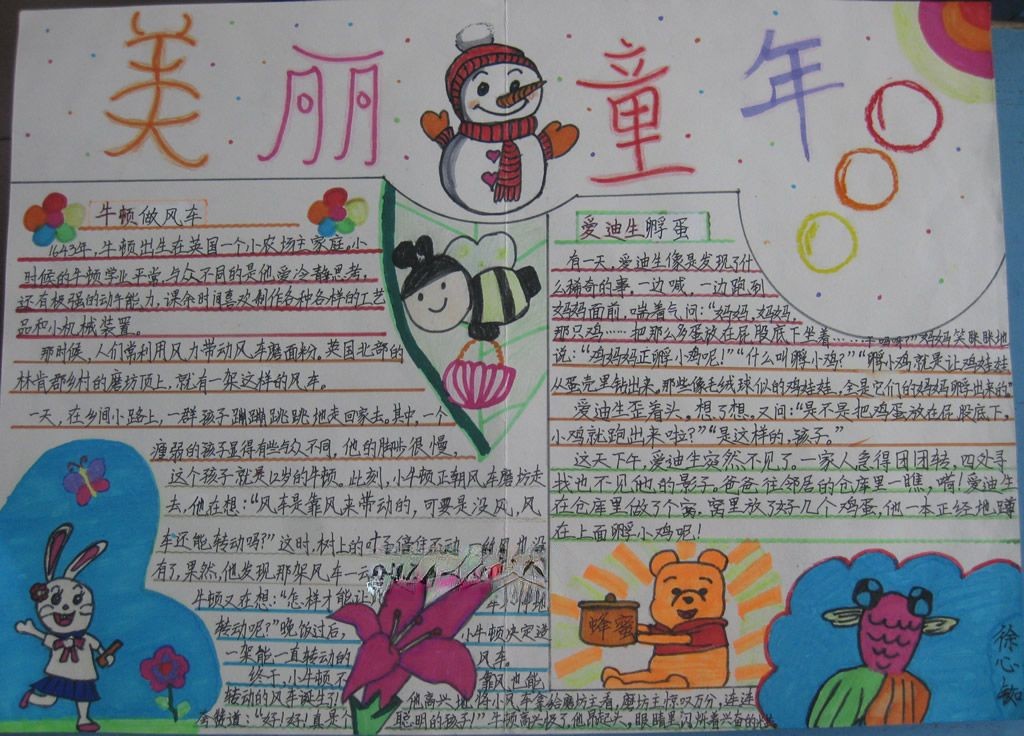 美丽童年
牛顿做风车
1643年,牛顿出生在英国一个小农场主家庭,小
时候的牛顿学业平常,与众不同的是他爱冷静思考,
还有极强的动手能力,课余时间喜欢制作各种各样的工艺
品和小机械装置。
那时候,人们常利用风力带动风车磨面粉。英国北部的
林肯郡乡村的磨坊顶上,就有一架这样的风车。
一天,在乡间小路上,一群孩子蹦蹦跳跳地走回家去。其中,一个
瘦弱的孩子显得有些与众不同,他的脚步很慢,
这个孩子就是12岁的牛顿。此刻,小牛顿正朝风车磨坊走
去,他在想:“风车是靠风来带动的,可要是没风,风
车还能转动吗?”这时,树上的叶子
有了,果然,他发现,那架风车一
牛顿又在想:“怎样才能让
转动呢?”晚饭过后, 小牛顿决定造
一架能一直转动的 风车。
终于,小牛顿不 靠风也能
转动的风车诞生了! 他高兴地将小风车拿给磨坊主看,磨坊主惊叹万分,连连
夸赞道:“好!好!真是个 聪明的孩子!”牛顿高兴极了,他昂起头,眼睛里闪烁着兴奋的
爱迪生孵蛋
有一天,爱迪生像是发现了什
么稀奇的事,一边喊,一边跑到
妈妈面前,喘着气问:“妈妈,妈妈,
那只鸡……把那么多蛋放在屁股底下坐着…… 妈妈笑眯眯地
说:“鸡妈妈正孵小鸡呢!”“什么叫孵小鸡?”“孵小鸡就是让鸡娃娃
从蛋壳里钻出来,那些像毛绒球似的鸡娃娃,全是它们的妈妈孵出来的”
爱迪生歪着头,想了想,又问:“是不是把鸡蛋放在屁股底下,
小鸡就跑出来啦?”“是这样的,孩子。”
这天下午,爱迪生突然不见了。一家人急得团团转,四处寻
找也不见他的影子。爸爸往邻居的仓库里一瞧,嗬!爱迪生
在仓库里做了个窝,窝里放了好几个鸡蛋,他一本正经地蹲
在上面孵小鸡呢!
蜂蜜
徐心